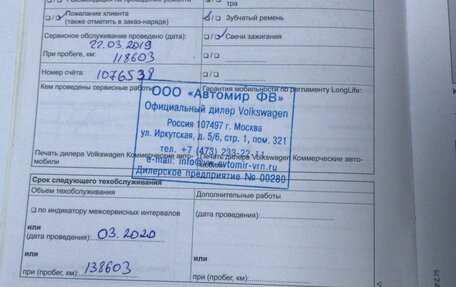 Рекомендации по проведению ремонта
тра
☐/☑ Пожелание клиента
(также отметить в заказ-наряде)
☑/☐ Зубчатый ремень
Сервисное обслуживание проведено (дата):
22.03.2019
☐/☑ Свечи зажигания
При пробеге, км: 118603
☐/☐
Номер счёта: 1076538
☐/☐
Кем проведены сервисные работы:
Гарантия мобильности по регламенту LongLife:
ООО «Автомир ФВ»
Официальный дилер Volkswagen
Россия 107497 г. Москва
ул. Иркутская, д. 5/6, стр. 1, пом. 321
тел. +7 (473) 233-22-11
e-mail: info@vw-avtomir-vrn.ru
Дилерское предприятие № 00280
Печать дилера Volkswagen Коммерческие авто-
мобили
Печать дилера Volkswagen Коммерческие авто-
мобили
Срок следующего техобслуживания
Объем техобслуживания
Дополнительные работы
☐ по индикатору межсервисных интервалов
или
(дата проведения): 03.2020
(дата проведения):
или
или
при (пробег, км): 138603
при (пробег, км):